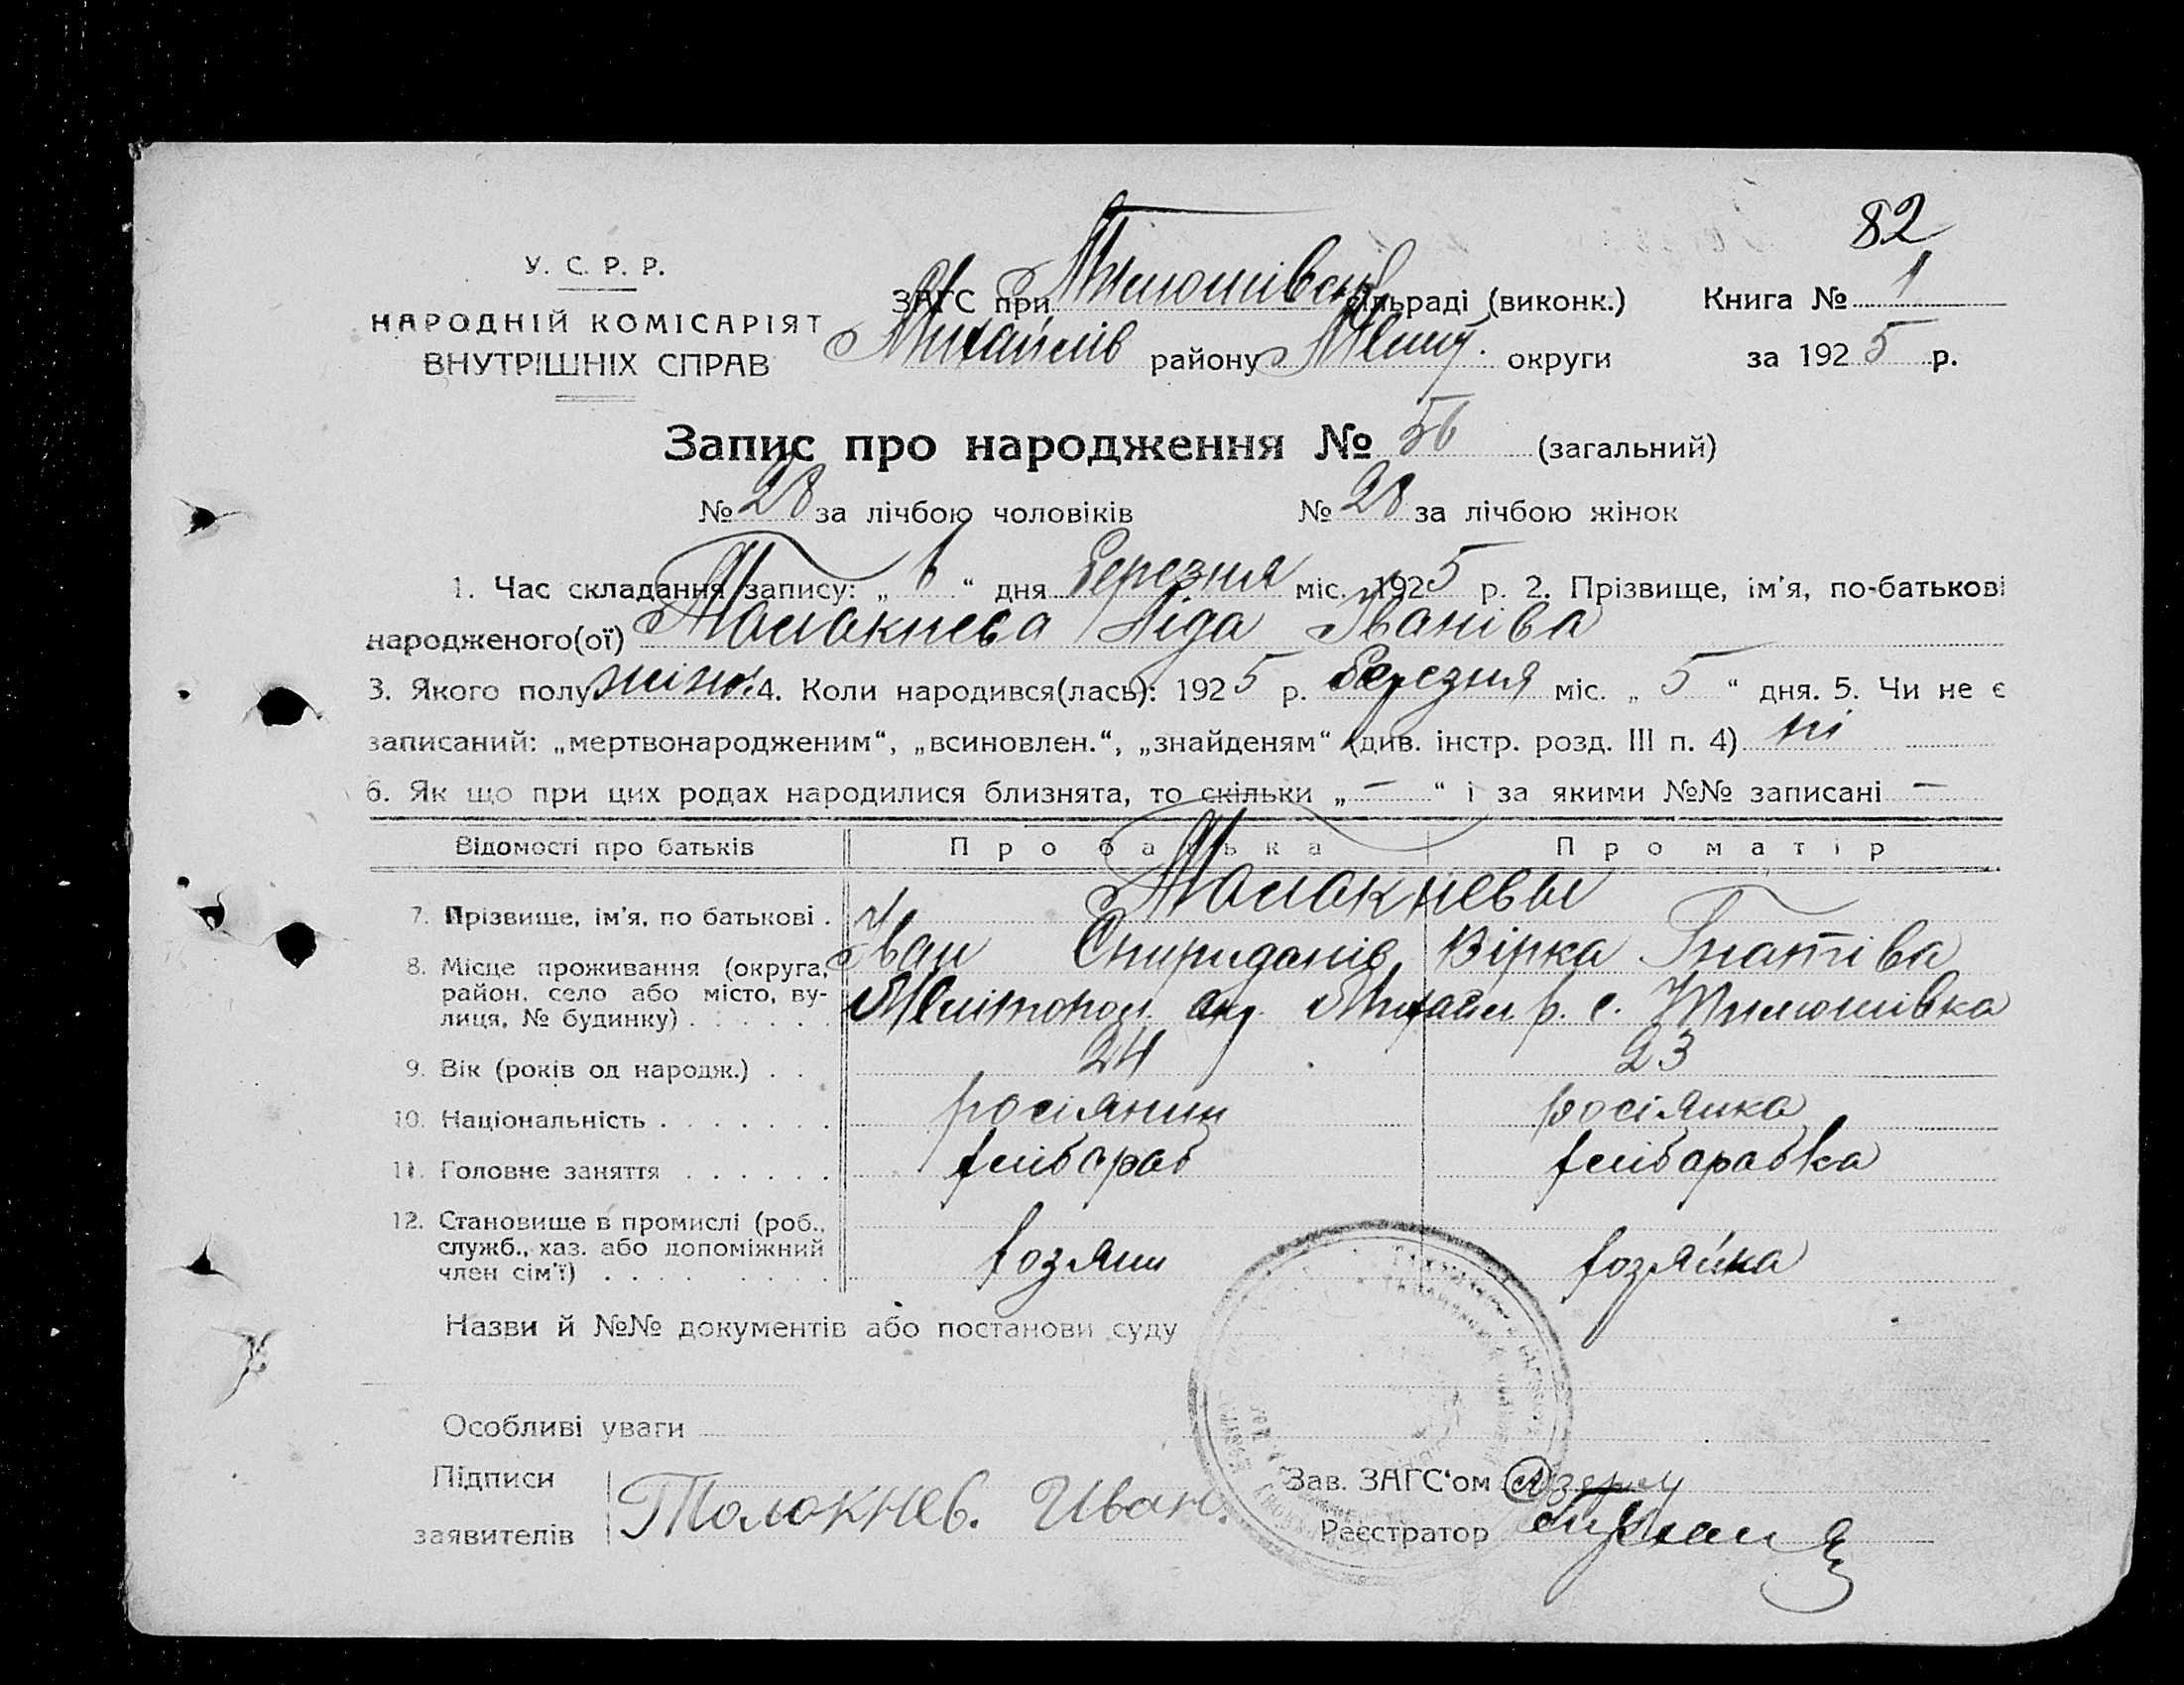 82
У. С. Р. Р.
НАРОДНІЙ КОМІСАРІЯТ
ВНУТРІШНІХ СПРАВ
ЗАГС при Тимошівській сільраді (виконк.) Книга № 1
Михайлів району Меліт. округи за 1925 р.
Запис про народження № 56 (загальний)
№ 28 за лічбою чоловіків № 28 за лічбою жінок
1. Час складання запису: „ 6 “ дня Березня міс. 1925 р. 2. Прізвище, ім'я, по-батькові
народженого(ої) Толокнева Ліда Іванівa
3. Якого полу жіноч. 4. Коли народився(лась): 1925 р. березня міс. „ 5 “ дня. 5. Чи не є
записаний: „мертвонародженим“, „всиновлен.“, „знайденям“ (див. інстр. розд. III п. 4) ні
6. Як що при цих родах народилися близнята, то скільки „ — “ і за якими №№ записані —
Відомості про батьків Про батька Про матір
Толокневы
7. Прізвище, ім'я, по батькові . Іван Спиридонів Вірка Гнатіва
8. Місце проживання (округа,
район, село або місто, ву-
лиця, № будинку) . . . . . . Мелітопол. окр. Михайл. р. с. Тимошівка
9. Вік (років од народж.) . . 24 23
10. Національність . . . . . . . росіянин росіянка
11. Головне заняття . . . . . . хлібораб хлібарабка
12. Становище в промислі (роб.,
служб., хаз. або допоміжний
член сім'ї) . . . . . . . . хозяин хозяйка
Назви й №№ документів або постанови суду
Особливі уваги
Підписи
заявителів Толокнев. Иван.
Зав. ЗАГС'ом
Реєстратор